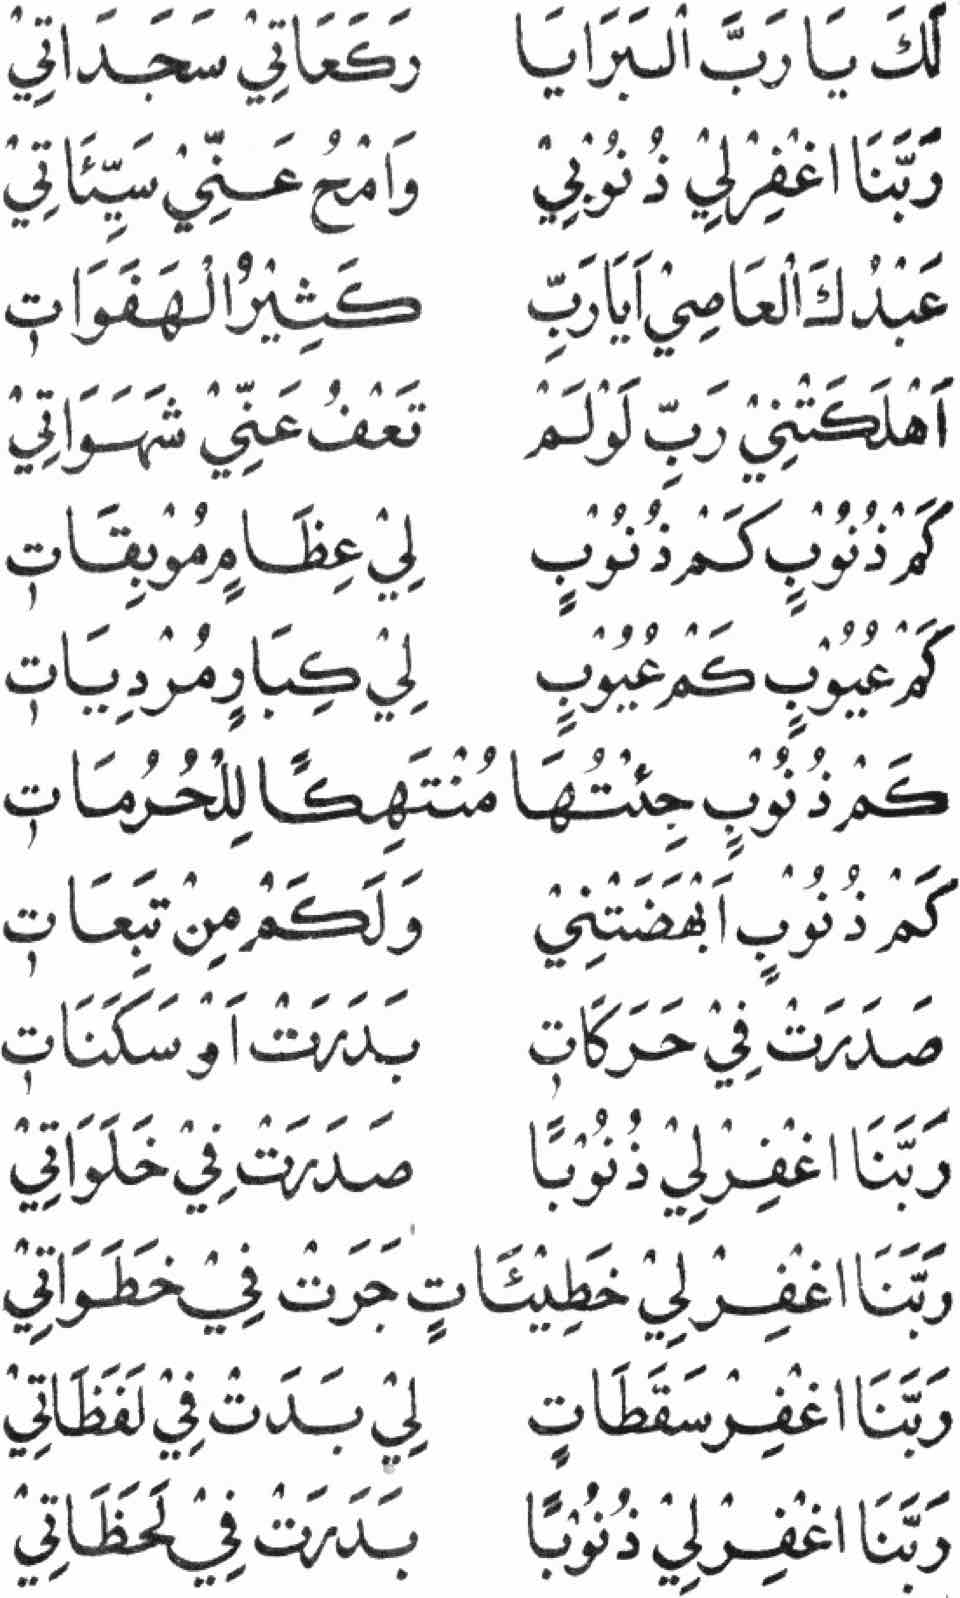 لَكَ يَا رَبَّ الْبَرَايَا رَكَعَاتِيْ سَجَدَاتِيْ
رَبَّنَا اغْفِرْ لِيْ ذُنُوْبِيْ وَامْحُ عَنِّيْ سَيِّئَاتِيْ
عَبْدُكَ الْعَاصِيْ اَيَارَبِّ كَثِيْرُ الْهَفَوَاتِ
اَهْلَكَتْنِيْ رَبِّ لَوْلَمْ تَعْفُ عَنِّيْ شَهَوَاتِيْ
كَمْ ذُنُوْبٍ كَمْ ذُنُوْبٍ لِيْ عِظَامٍ مُوْبِقَاتِ
كَمْ عُيُوْبٍ كَمْ عُيُوْبٍ لِيْ كِبَارٍ مُرْدِيَاتِ
كَمْ ذُنُوْبٍ جِئْتُهَا مُنْتَهِكًا لِلْحُرُمَاتِ
كَمْ ذُنُوْبٍ اَبْهَضَتْنِيْ وَلَكَمْ مِنْ تَبِعَاتِ
صَدَرَتْ فِيْ حَرَكَاتٍ بَدَرَتْ اَوْ سَكَنَاتِ
رَبَّنَا اغْفِرْ لِيْ ذُنُوْبًا صَدَرَتْ فِيْ خَلَوَاتِيْ
رَبَّنَا اغْفِرْ لِيْ خَطِيْئَاتٍ جَرَتْ فِيْ خَطَوَاتِيْ
رَبَّنَا اغْفِرْ سَقَطَاتٍ لِيْ بَدَتْ فِيْ لَفَظَاتِيْ
رَبَّنَا اغْفِرْ لِيْ ذُنُوْبًا بَدَرَتْ فِيْ لَحَظَاتِيْ